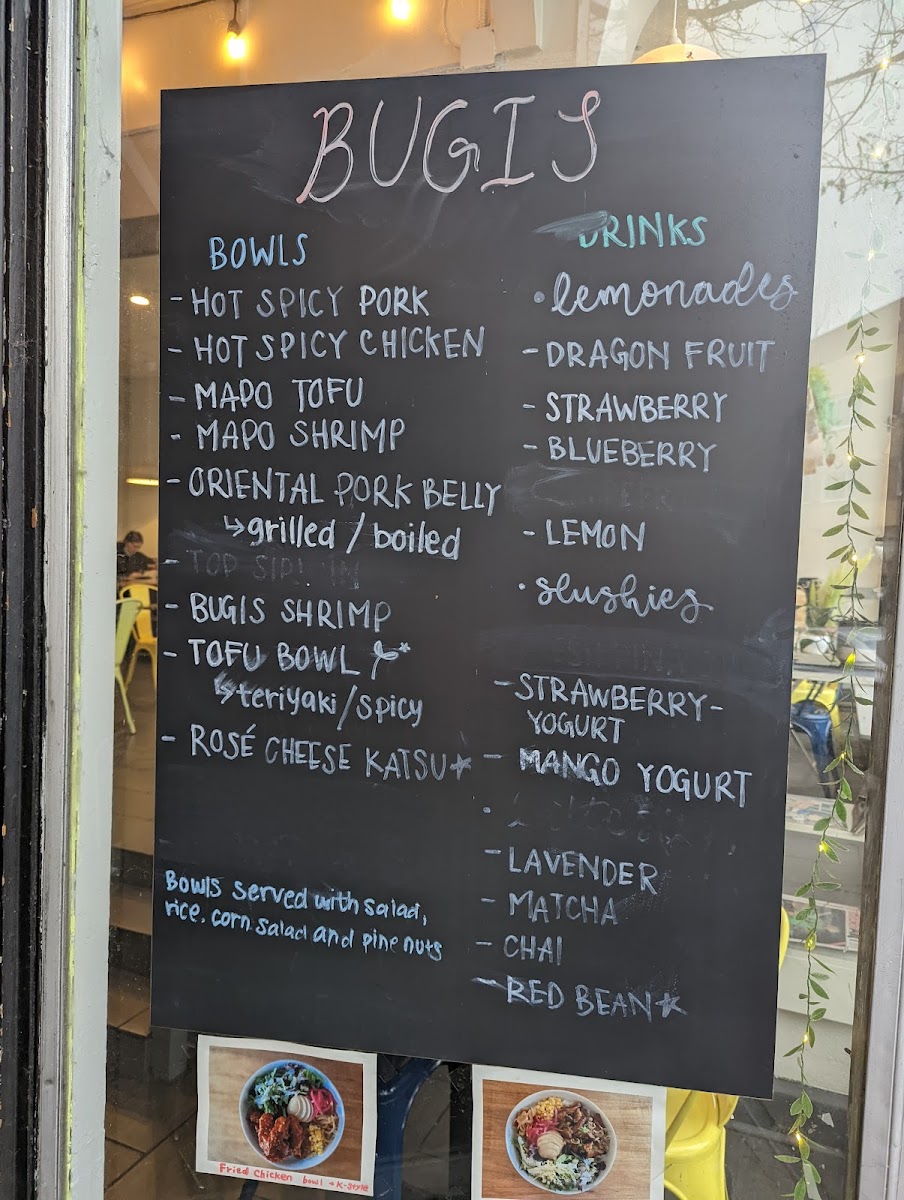 BUGIS
BOWLS
- HOT SPICY PORK
- HOT SPICY CHICKEN
- MAPO TOFU
- MAPO SHRIMP
- ORIENTAL PORK BELLY
↳ grilled / boiled
- TOP SIRLOIN
- BUGIS SHRIMP
- TOFU BOWL *
↳ teriyaki / spicy
- ROSÉ CHEESE KATSU ★
Bowls served with salad,
rice, corn salad and pine nuts
DRINKS
• lemonades
- DRAGON FRUIT
- STRAWBERRY
- BLUEBERRY
- LEMON
• slushies
- STRAWBERRY-
YOGURT
- MANGO YOGURT
- LAVENDER
- MATCHA
- CHAI
- RED BEAN ★
Fried Chicken bowl K-style